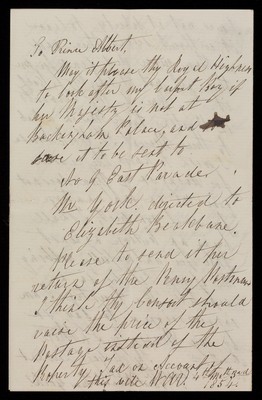 To Prince Albert.
May it please thy Royal Highness
to look after my carpet bag if
her Majesty is not at
Buckingham Palace, and
it to be sent to
No 9 East Parade
York directed
Elizabeth
Please to send it per
return of the Penny Postman
I think thy consort should
raise the price of the
Postage instead of the
Property Tax on account
this vote